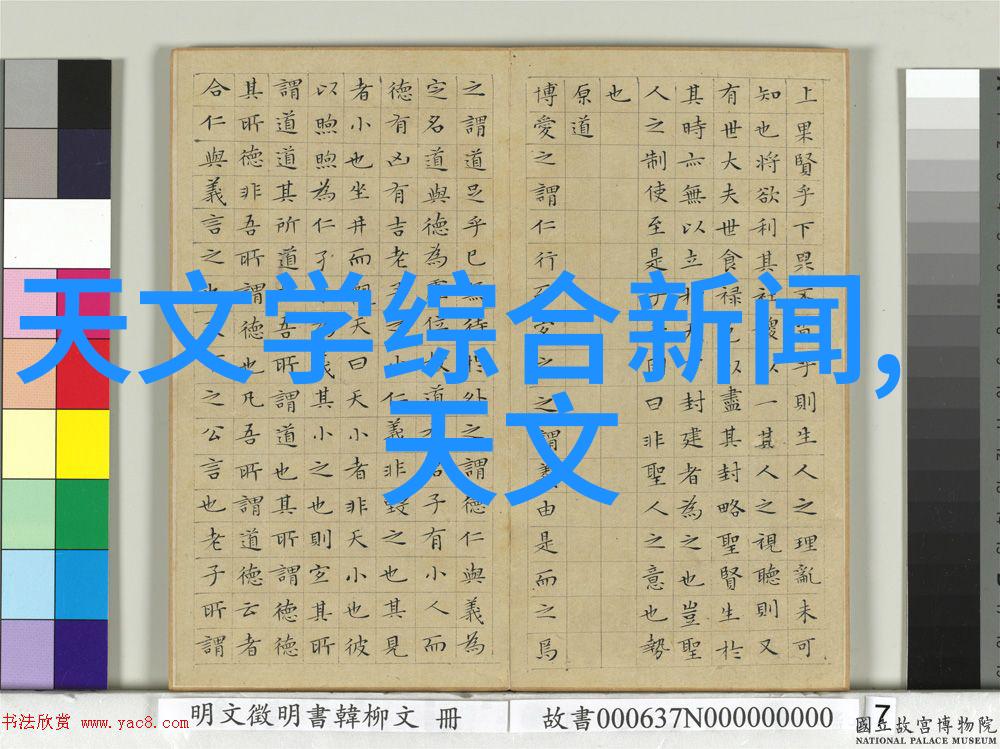 天文学综合新闻,
天文
上果賢乎下果不肖乎則生人之理亂未可
知也將欲利其社稷以一其人之視聽則又
有世大夫世食禄邑以盡其封略聖賢生於
其時亦無以立於天下封建者為之也豈聖
人之制使至是乎曰非聖人之意也勢
也
原道
博愛之謂仁行而宜之之謂義由是而之焉
之謂道足乎己無待於外之謂德仁與義為
定名道與德為虛位故道有君子有小人而
德有凶有吉老子之小仁義非毀之也其見
者小也坐井而觀天曰天小者非天小也彼
以煦煦為仁孑為義其小之也則宜其所
謂道道其所道非吾所謂道也其所謂德德
其所德非吾所謂德也凡吾所謂道德云者
合仁與義言之也之公言也老子所謂
明文徵明書韓柳文 冊
故書000637N000000000
7
书法欣赏 www.yac8.com
國立故宮博物院
NATIONAL PALACE MUSEUM